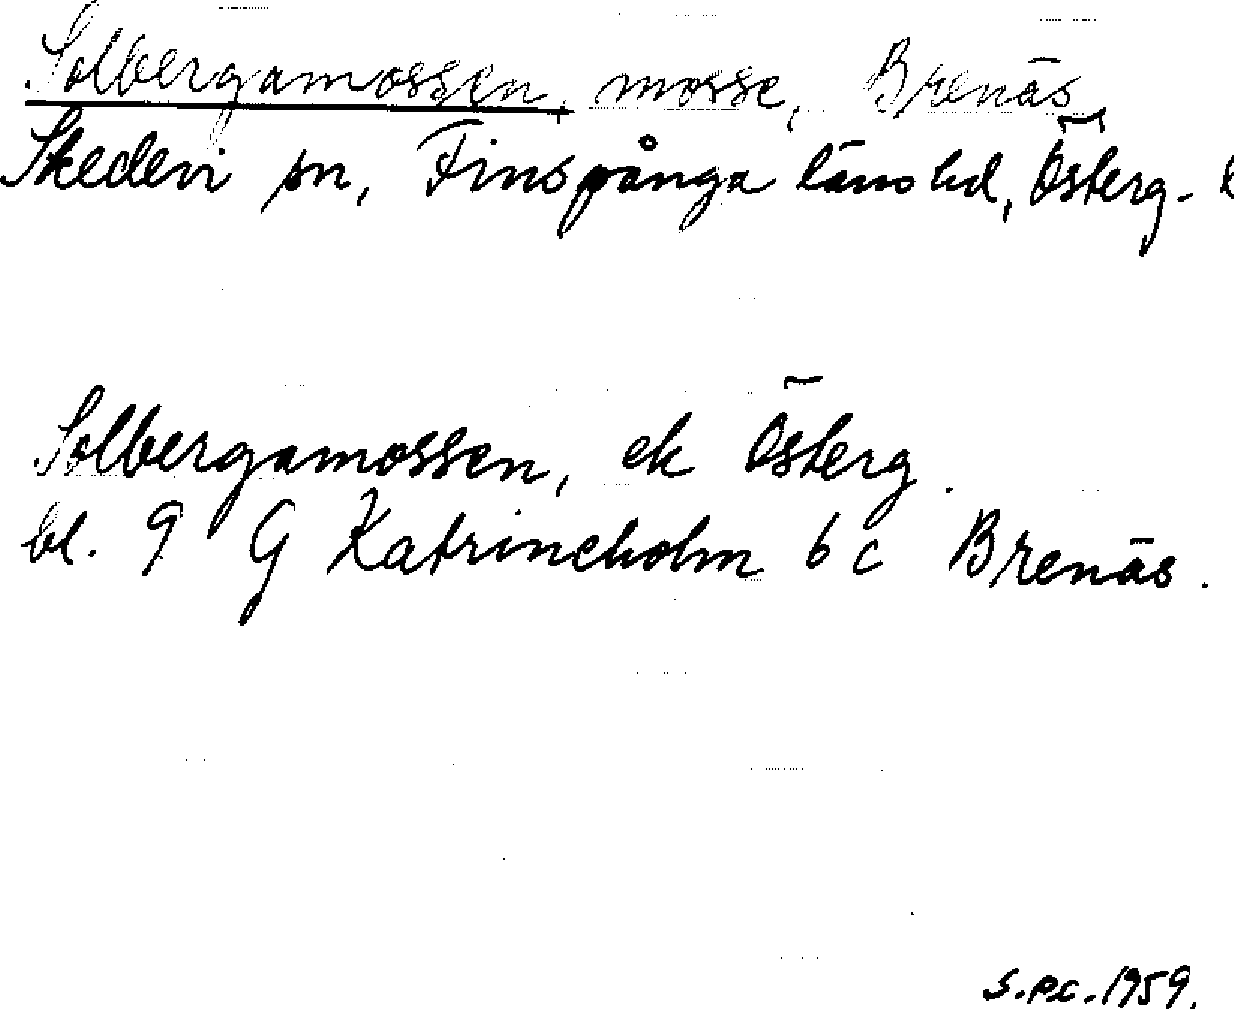 Solbergamossen, mosse, Brenäs,
Skedevi sn, Finspånga läns hd, Österg. l
Solbergamossen, ek Österg.
bl. 9 G Katrineholm 6 c Brenäs.
S.P.C. 1959.